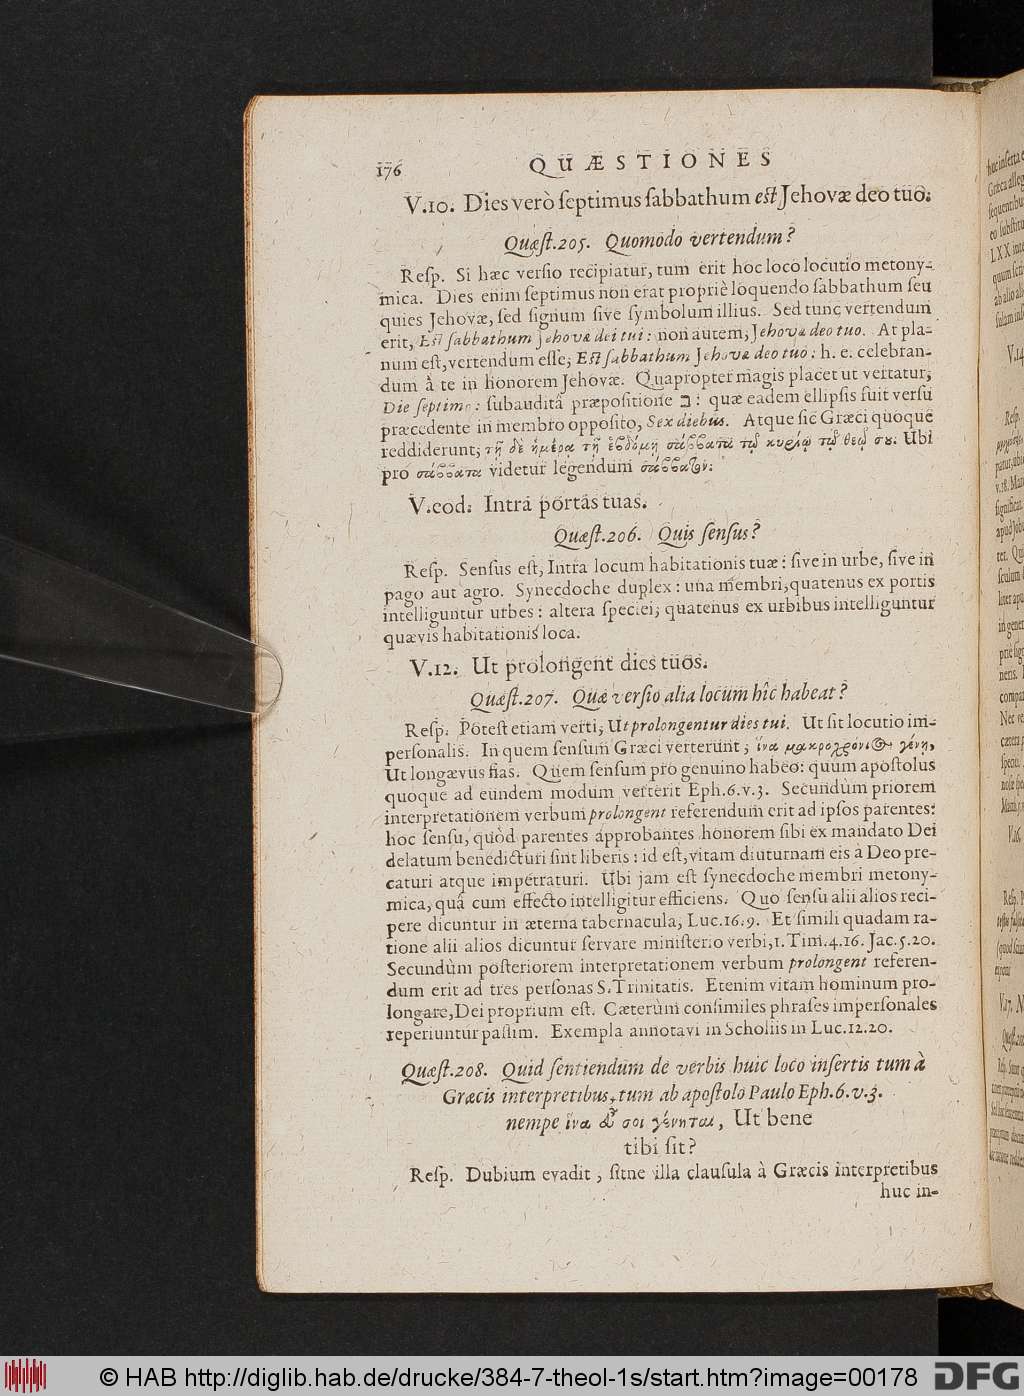 176 QUÆSTIONES
V.10. Dies verò ſeptimus ſabbathum eſt Jehovæ deo tuo.
Quæſt.205. Quomodo vertendum?
Reſp. Si hæc verſio recipiatur, tum erit hoc loco locutio metony-
mica. Dies enim ſeptimus non erat propriè loquendo ſabbathum ſeu
quies Jehovæ, ſed ſignum ſive ſymbolum illius. Sed tunc vertendum
erit, Eſt ſabbathum Jehovæ dei tui: non autem, Jehovæ deo tuo. At pla-
num eſt, vertendum eſſe, Eſt ſabbathum Jehovæ deo tuo: h. e. celebran-
dum à te in honorem Jehovæ. Quapropter magis placet ut vertatur,
Die ſeptimo: ſubauditâ præpoſitione ב: quæ eadem ellipſis fuit verſu
præcedente in membro oppoſito, Sex diebus. Atque ſic Græci quoque
reddiderunt; τῇ δὲ ἡμέρᾳ τῇ ἑβδόμῃ σάββατα τῷ κυρίῳ τῷ θεῷ σου. Ubi
pro σάββατα videtur legendum σάββατον.
V.eod. Intra portas tuas.
Quæſt.206. Quis ſenſus?
Reſp. Senſus eſt, Intra locum habitationis tuæ: ſive in urbe, ſive in
pago aut agro. Synecdoche duplex: una membri, quatenus ex portis
intelliguntur urbes: altera ſpeciei, quatenus ex urbibus intelliguntur
quævis habitationis loca.
V.12. Ut prolongent dies tuos.
Quæſt.207. Quæ verſio alia locum hîc habeat?
Reſp. Poteſt etiam verti, Ut prolongentur dies tui. Ut ſit locutio im-
perſonalis. In quem ſenſum Græci verterunt, ἵνα μακροχρόνιος γένῃ,
Ut longævus fias. Quem ſenſum pro genuino habeo: quum apoſtolus
quoque ad eundem modum verterit Eph.6.v.3. Secundùm priorem
interpretationem verbum prolongent referendum erit ad ipſos parentes:
hoc ſenſu, quòd parentes approbantes honorem ſibi ex mandato Dei
delatum benedicturi ſint liberis: id eſt, vitam diuturnam eis à Deo pre-
caturi atque impetraturi. Ubi jam eſt ſynecdoche membri metony-
mica, quâ cum effecto intelligitur efficiens. Quo ſenſu alii alios reci-
pere dicuntur in æterna tabernacula, Luc.16.9. Et ſimili quadam ra-
tione alii alios dicuntur ſervare miniſterio verbi, 1. Tim.4.16. Jac.5.20.
Secundùm poſteriorem interpretationem verbum prolongent referen-
dum erit ad tres perſonas S. Trinitatis. Etenim vitam hominum pro-
longare, Dei proprium eſt. Cæterùm conſimiles phraſes imperſonales
reperiuntur paſſim. Exempla annotavi in Scholiis in Luc.12.20.
Quæſt.208. Quid ſentiendum de verbis huic loco inſertis tum à
Græcis interpretibus, tum ab apoſtolo Paulo Eph.6.v.3.
nempe ἵνα εὖ σοι γένηται, Ut bene
tibi ſit?
Reſp. Dubium evadit, ſitne illa clauſula à Græcis interpretibus
huc in-
© HAB http://diglib.hab.de/drucke/384-7-theol-1s/start.htm?image=00178
DFG